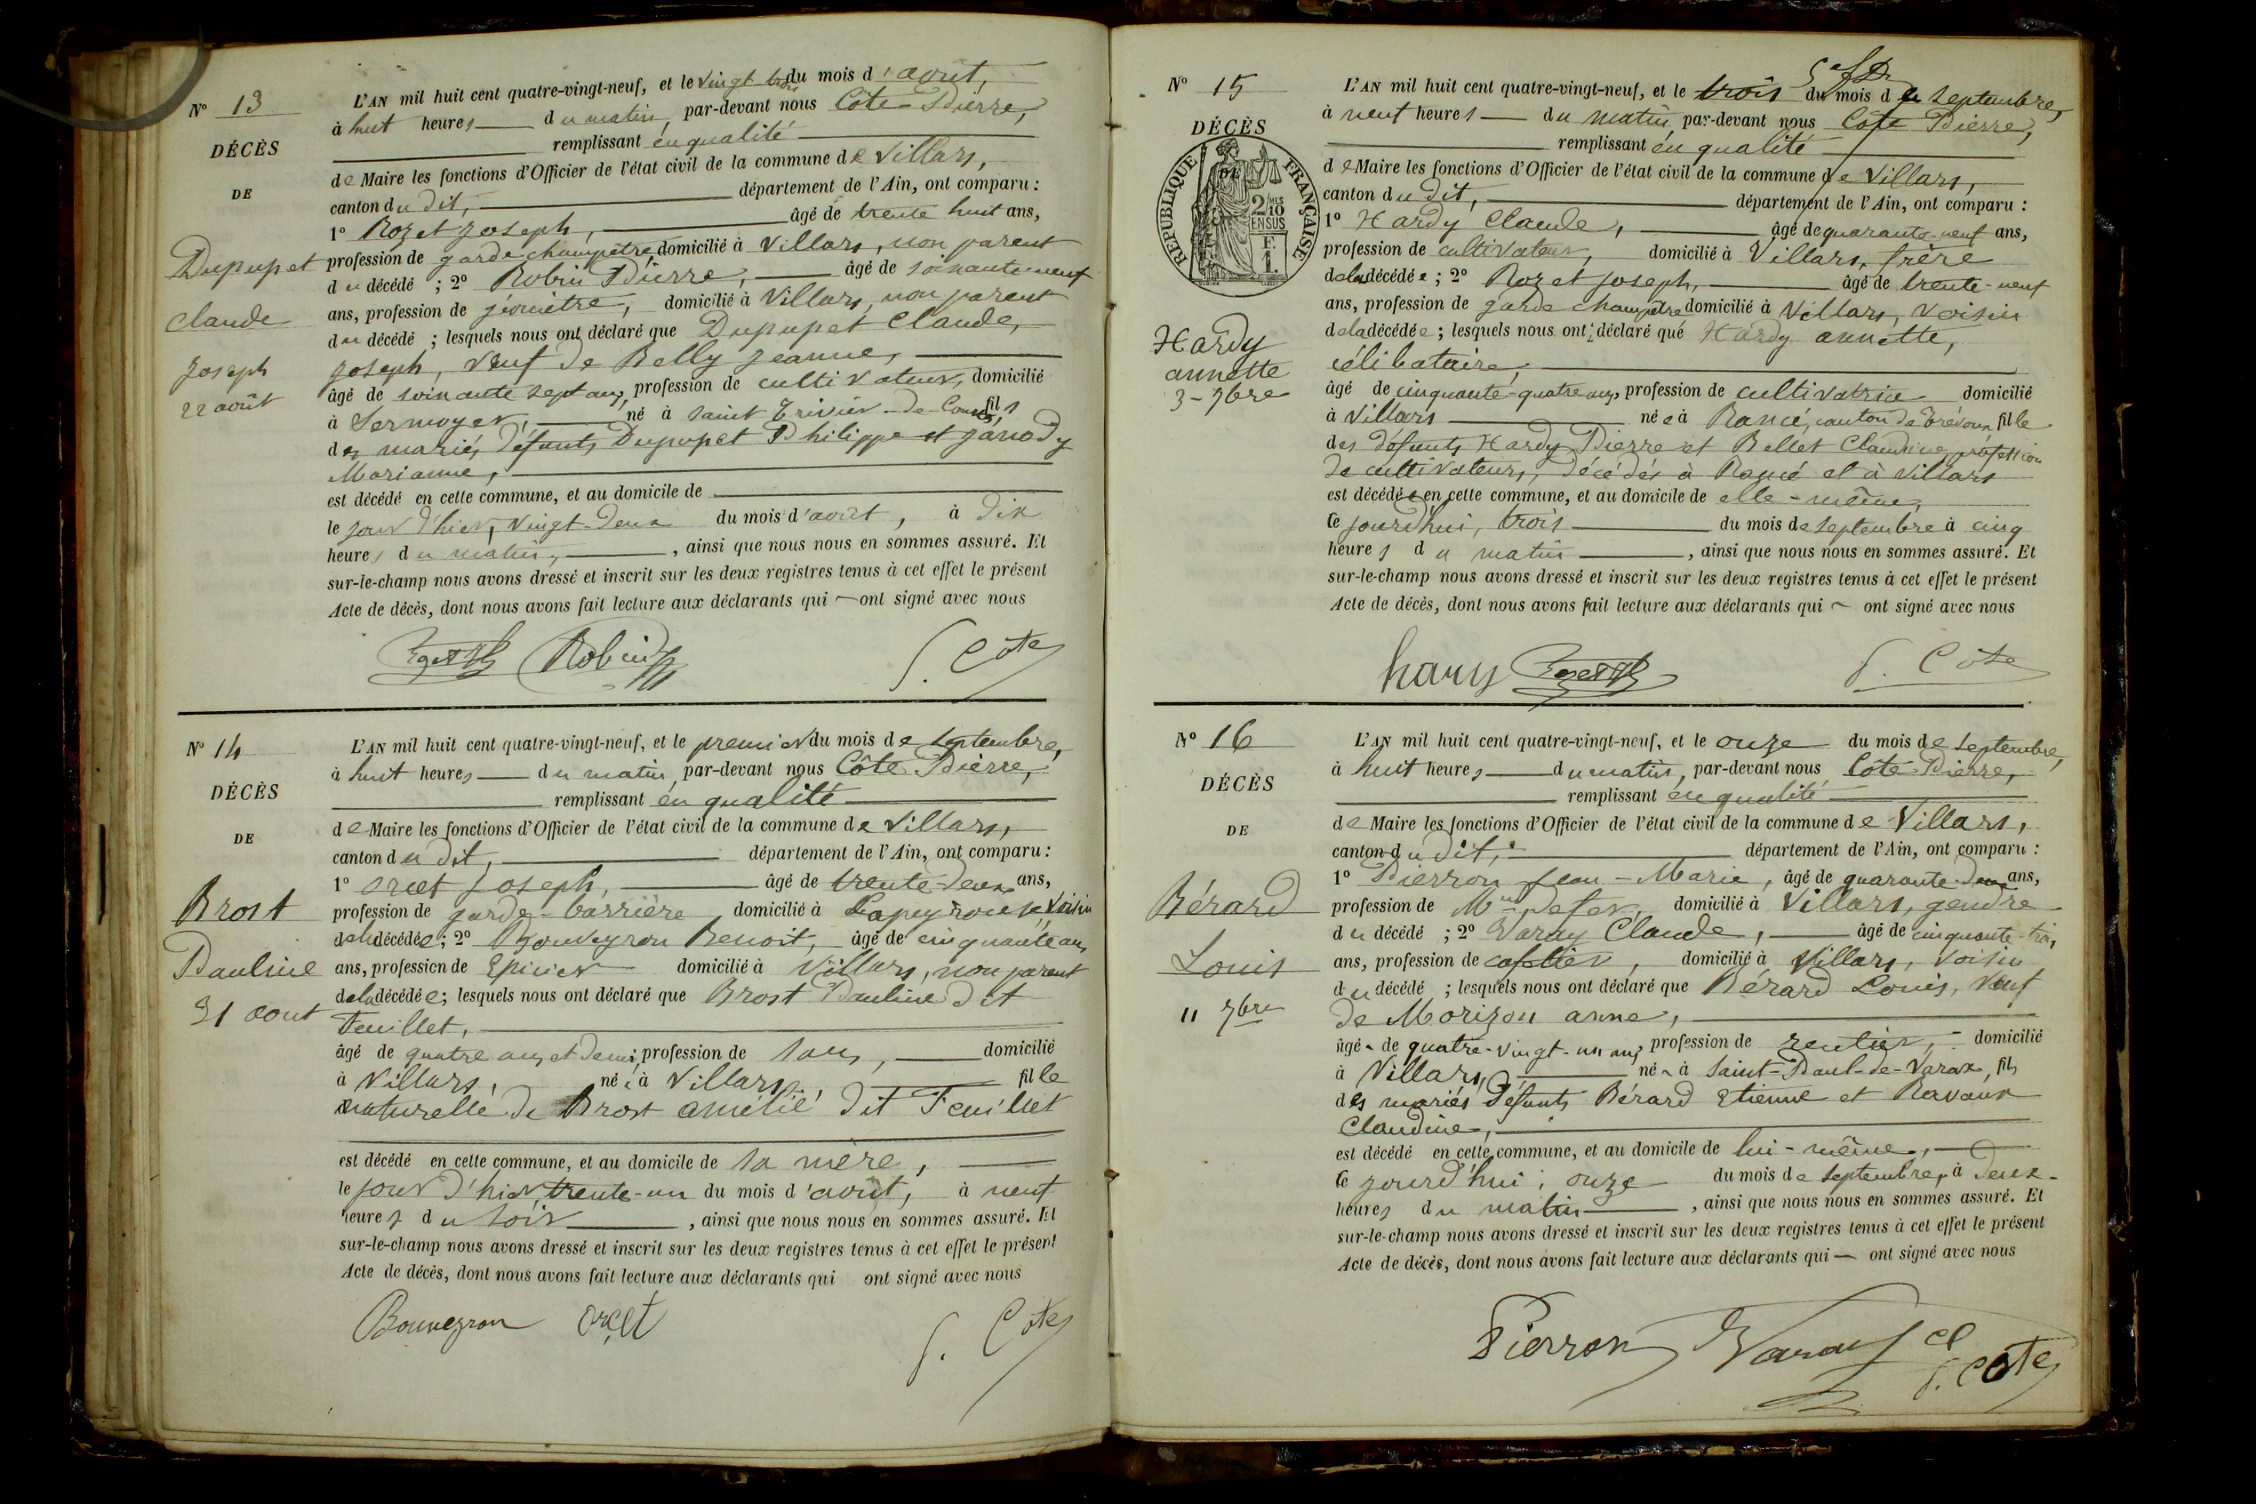 N° 13
DÉCÈS
DE
Dupupet
Claude
Joseph
22 août
L'AN mil huit cent quatre-vingt-neuf, et le vingt trois du mois d'août,
à huit heures du matin, par-devant nous Côte Pierre,
remplissant en qualité
de Maire les fonctions d'Officier de l'état civil de la commune de Villars,
canton du dit, département de l'Ain, ont comparu :
1° Rozet Joseph, âgé de trente huit ans,
profession de garde champêtre, domicilié à Villars, non parent
du décédé ; 2° Robin Pierre, âgé de soixante-neuf
ans, profession de géomètre, domicilié à Villars, non parent
du décédé ; lesquels nous ont déclaré que Dupupet Claude,
Joseph, veuf de Belly Jeanne,
âgé de soixante sept ans, profession de cultivateur, domicilié
à Sermoyer, né à Saint Trivier-de-Courtes, fils
des mariés défunts Dupupet Philippe et Janody
Marianne,
est décédé en cette commune, et au domicile de
le jour d'hier, vingt-deux du mois d'août, à dix
heures du matin, ainsi que nous nous en sommes assuré. Et
sur-le-champ nous avons dressé et inscrit sur les deux registres tenus à cet effet le présent
Acte de décès, dont nous avons fait lecture aux déclarants qui ont signé avec nous
Robin P. Côte
N° 14
DÉCÈS
DE
Brost
Pauline
31 aout
L'AN mil huit cent quatre-vingt-neuf, et le premier du mois de septembre,
à huit heures du matin, par-devant nous Côte Pierre,
remplissant en qualité
de Maire les fonctions d'Officier de l'état civil de la commune de Villars,
canton du dit, département de l'Ain, ont comparu :
1° Orcet Joseph, âgé de trente-deux ans,
profession de garde-barrière domicilié à Lapeyrouse, voisin
de la décédée ; 2° Bouveyron Benoit, âgé de cinquante ans,
ans, profession de Epicier domicilié à Villars, non parent
de la décédée ; lesquels nous ont déclaré que Brost Pauline dit
Feuillet,
âgé de quatre ans et demi, profession de sans, domicilié
à Villars, né à Villars, fille
naturelle de Brost Amélie dit Feuillet
est décédé en cette commune, et au domicile de sa mère,
le jour d'hier, trente-un du mois d'août, à neuf
heures du soir, ainsi que nous nous en sommes assuré. Et
sur-le-champ nous avons dressé et inscrit sur les deux registres tenus à cet effet le présent
Acte de décès, dont nous avons fait lecture aux déclarants qui ont signé avec nous
Bouveyron Orcet P. Côte
N° 15
DÉCÈS
DE
REPUBLIQUE FRANÇAISE
2/10 EN SUS
F.
1.
Hardy
annette
3-7bre
L'AN mil huit cent quatre-vingt-neuf, et le trois du mois de septembre,
à neuf heures du matin, par-devant nous Côte Pierre,
remplissant en qualité
de Maire les fonctions d'Officier de l'état civil de la commune de Villars,
canton du dit, département de l'Ain, ont comparu :
1° Hardy Claude, âgé de quarante-neuf ans,
profession de cultivateur, domicilié à Villars, frère
de la décédée ; 2° Rozet Joseph, âgé de trente-neuf
ans, profession de garde champêtre domicilié à Villars, voisin
de la décédée ; lesquels nous ont déclaré que Hardy annette,
célibataire,
âgé de cinquante-quatre ans, profession de cultivatrice domicilié
à Villars née à Rancé, canton de Trévoux fille
des défunts Hardy Pierre et Bellet Claudine profession
de cultivateurs, décédés à Rancé et à Villars
est décédée en cette commune, et au domicile de elle-même,
le jourd'hui, trois du mois de septembre à cinq
heures du matin, ainsi que nous nous en sommes assuré. Et
sur-le-champ nous avons dressé et inscrit sur les deux registres tenus à cet effet le présent
Acte de décès, dont nous avons fait lecture aux déclarants qui ont signé avec nous
hary P. Côte
N° 16
DÉCÈS
DE
Bérard
Louis
11 7bre
L'AN mil huit cent quatre-vingt-neuf, et le onze du mois de septembre,
à huit heures du matin, par-devant nous Côte Pierre,
remplissant en qualité
de Maire les fonctions d'Officier de l'état civil de la commune de Villars,
canton du dit, département de l'Ain, ont comparu :
1° Pierron Jean-Marie, âgé de quarante-deux ans,
profession de domicilié à Villars, gendre
du décédé ; 2° Varay Claude, âgé de cinquante-trois
ans, profession de cafetier, domicilié à Villars, voisin
du décédé ; lesquels nous ont déclaré que Bérard Louis, veuf
de Morizon anne,
âgé de quatre-vingt-un ans, profession de rentier, domicilié
à Villars, né à Saint-Paul-de-Varax, fils
des mariés défunts Bérard Etienne et Ravaux
Claudine,
est décédé en cette commune, et au domicile de lui-même,
le jourd'hui, onze du mois de septembre, à deux
heures du matin, ainsi que nous nous en sommes assuré. Et
sur-le-champ nous avons dressé et inscrit sur les deux registres tenus à cet effet le présent
Acte de décès, dont nous avons fait lecture aux déclarants qui ont signé avec nous
Pierron Varay Cl
P. Côte